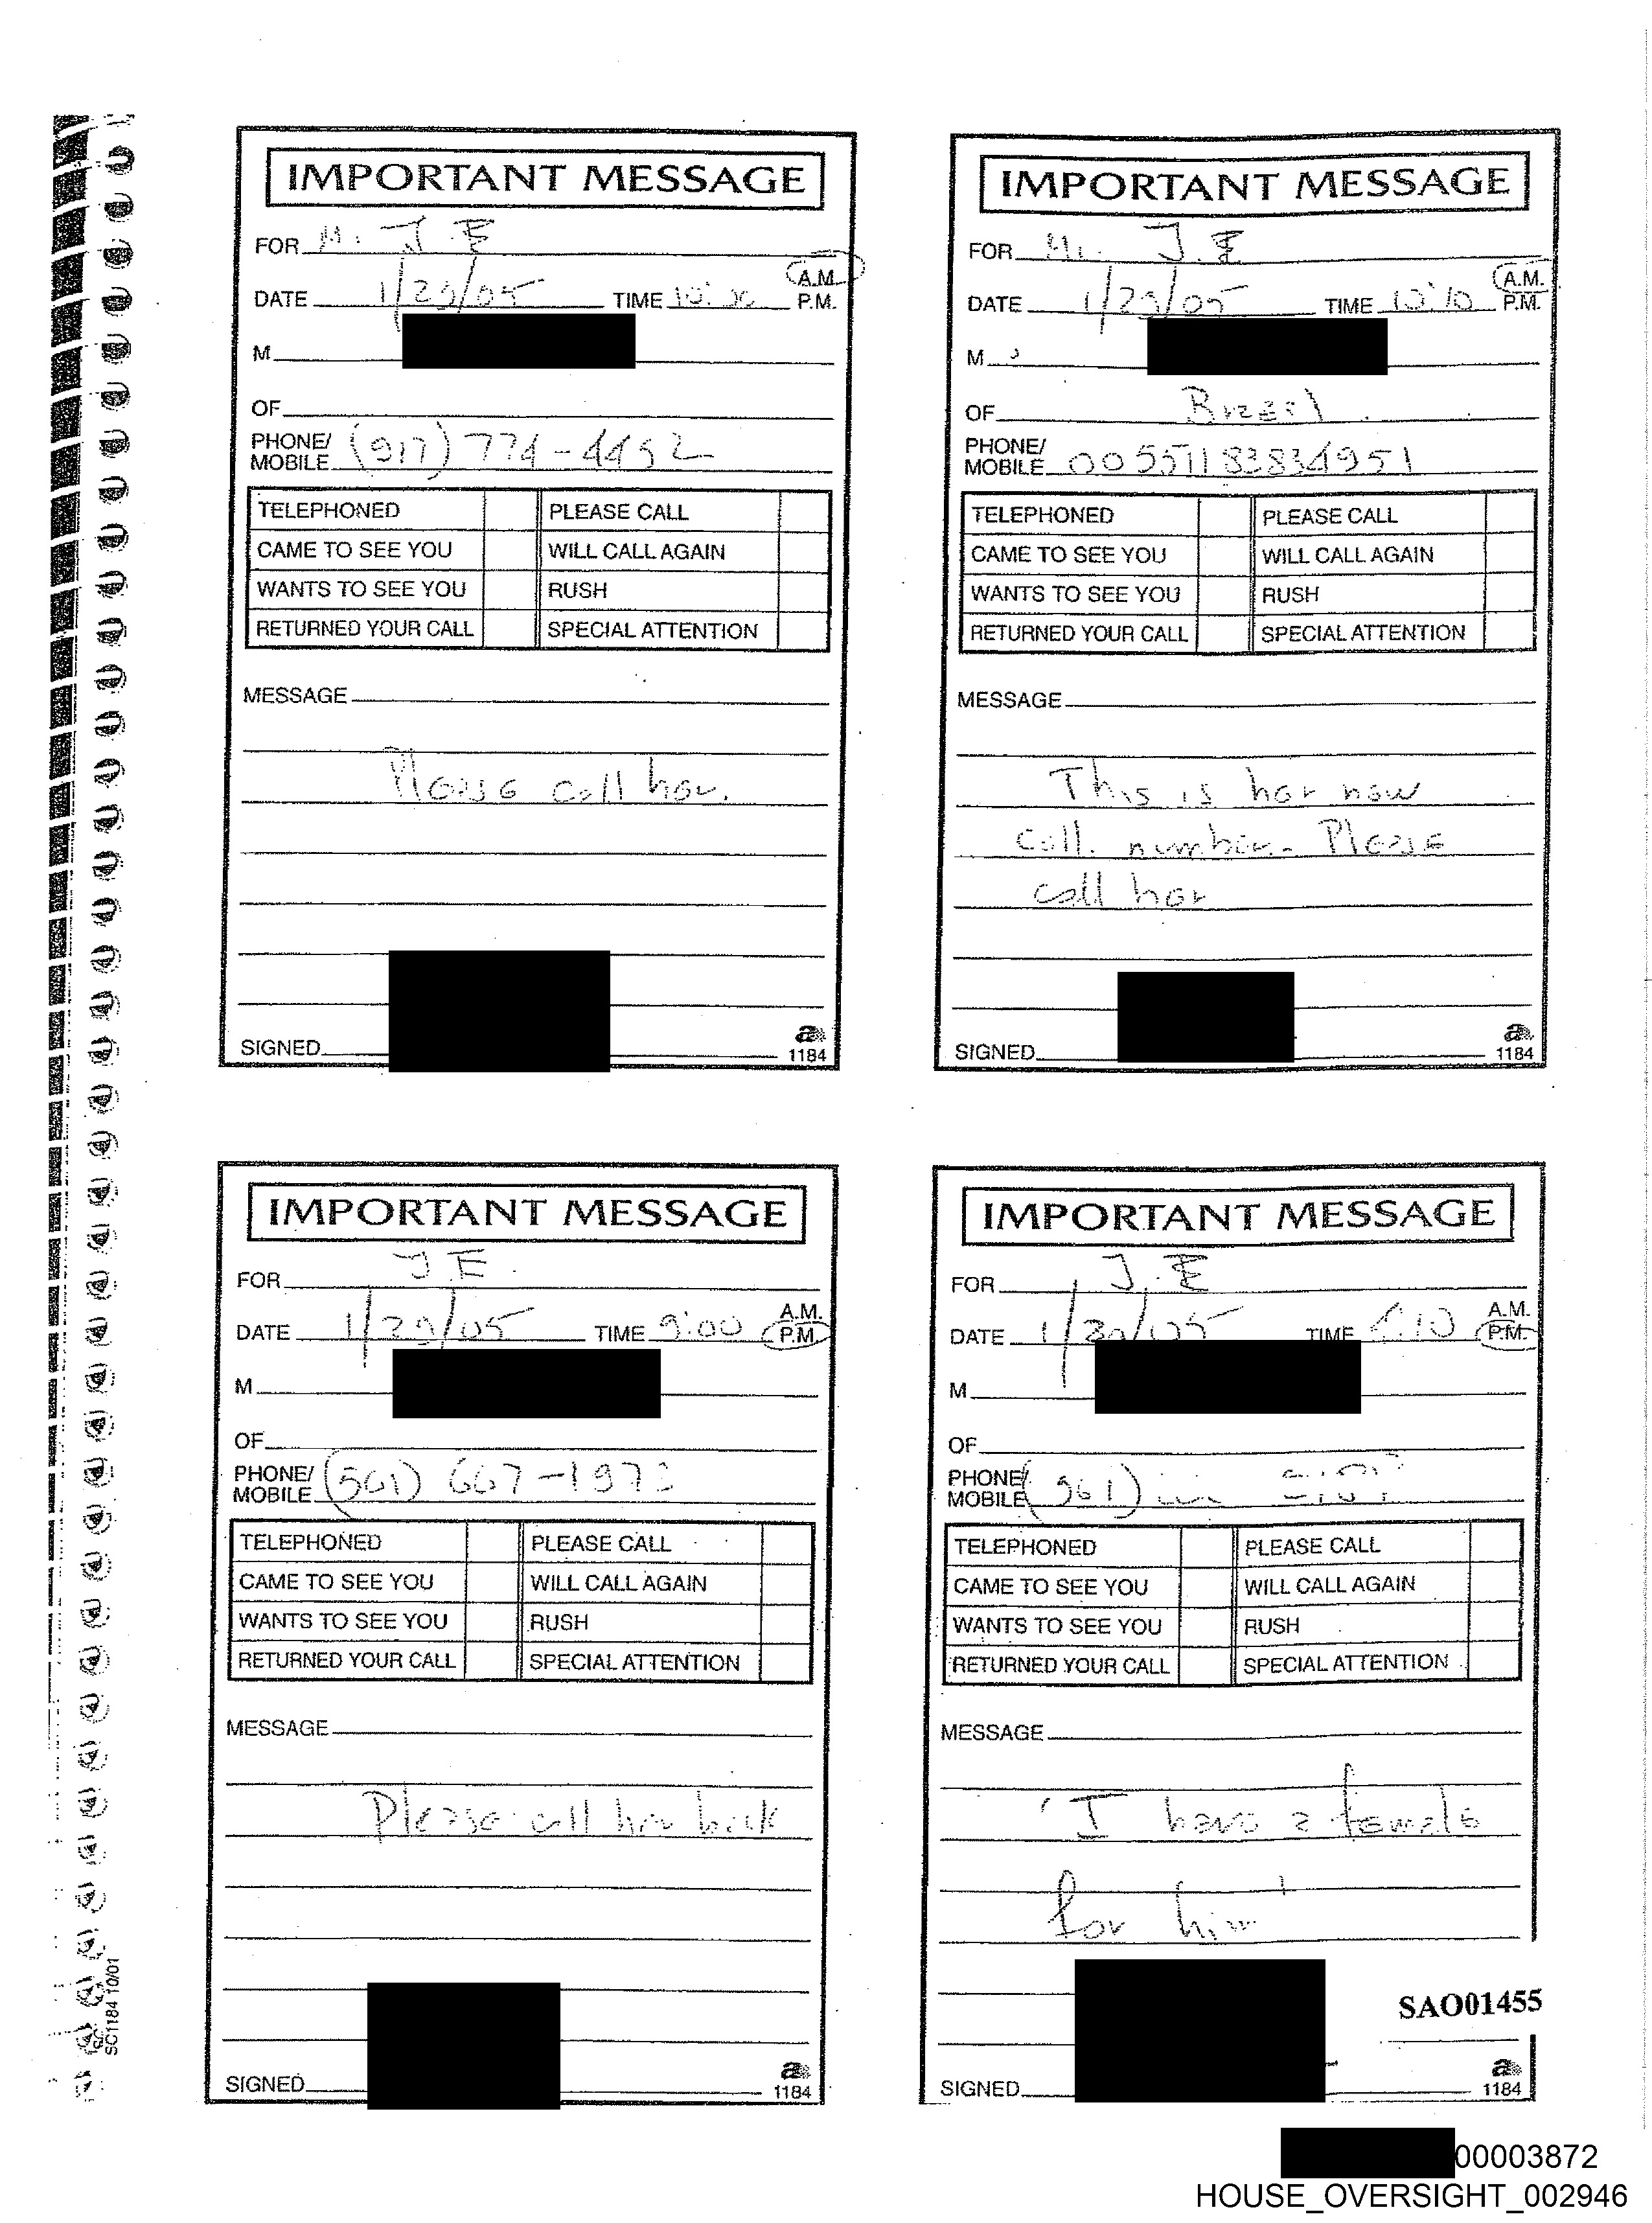 IMPORTANT MESSAGE
FOR M. J.E
DATE 1/29/05 TIME A.M.
P.M.
M
OF
PHONE/
MOBILE (917) 774-4452
TELEPHONED PLEASE CALL
CAME TO SEE YOU WILL CALL AGAIN
WANTS TO SEE YOU RUSH
RETURNED YOUR CALL SPECIAL ATTENTION
MESSAGE
Please call her.
SIGNED
a
1184
IMPORTANT MESSAGE
FOR Mr. J.E
DATE 1/29/05 TIME 10:10 A.M.
P.M.
M
OF Brazil
PHONE/
MOBILE 00551183834951
TELEPHONED PLEASE CALL
CAME TO SEE YOU WILL CALL AGAIN
WANTS TO SEE YOU RUSH
RETURNED YOUR CALL SPECIAL ATTENTION
MESSAGE
This is her new
cell. number. Please
call her
SIGNED
a
1184
IMPORTANT MESSAGE
FOR J.E.
DATE 1/29/05 TIME 9:00 A.M.
P.M.
M
OF
PHONE/
MOBILE (561) 667-197
TELEPHONED PLEASE CALL
CAME TO SEE YOU WILL CALL AGAIN
WANTS TO SEE YOU RUSH
RETURNED YOUR CALL SPECIAL ATTENTION
MESSAGE
Please call her back
SIGNED
a
1184
IMPORTANT MESSAGE
FOR J.E
DATE 1/30/05 TIME A.M.
P.M.
M
OF
PHONE/
MOBILE (561)
TELEPHONED PLEASE CALL
CAME TO SEE YOU WILL CALL AGAIN
WANTS TO SEE YOU RUSH
RETURNED YOUR CALL SPECIAL ATTENTION
MESSAGE
'I have a female
for him'
SAO01455
SIGNED
a
1184
SC1184 10/01
00003872
HOUSE_OVERSIGHT_002946